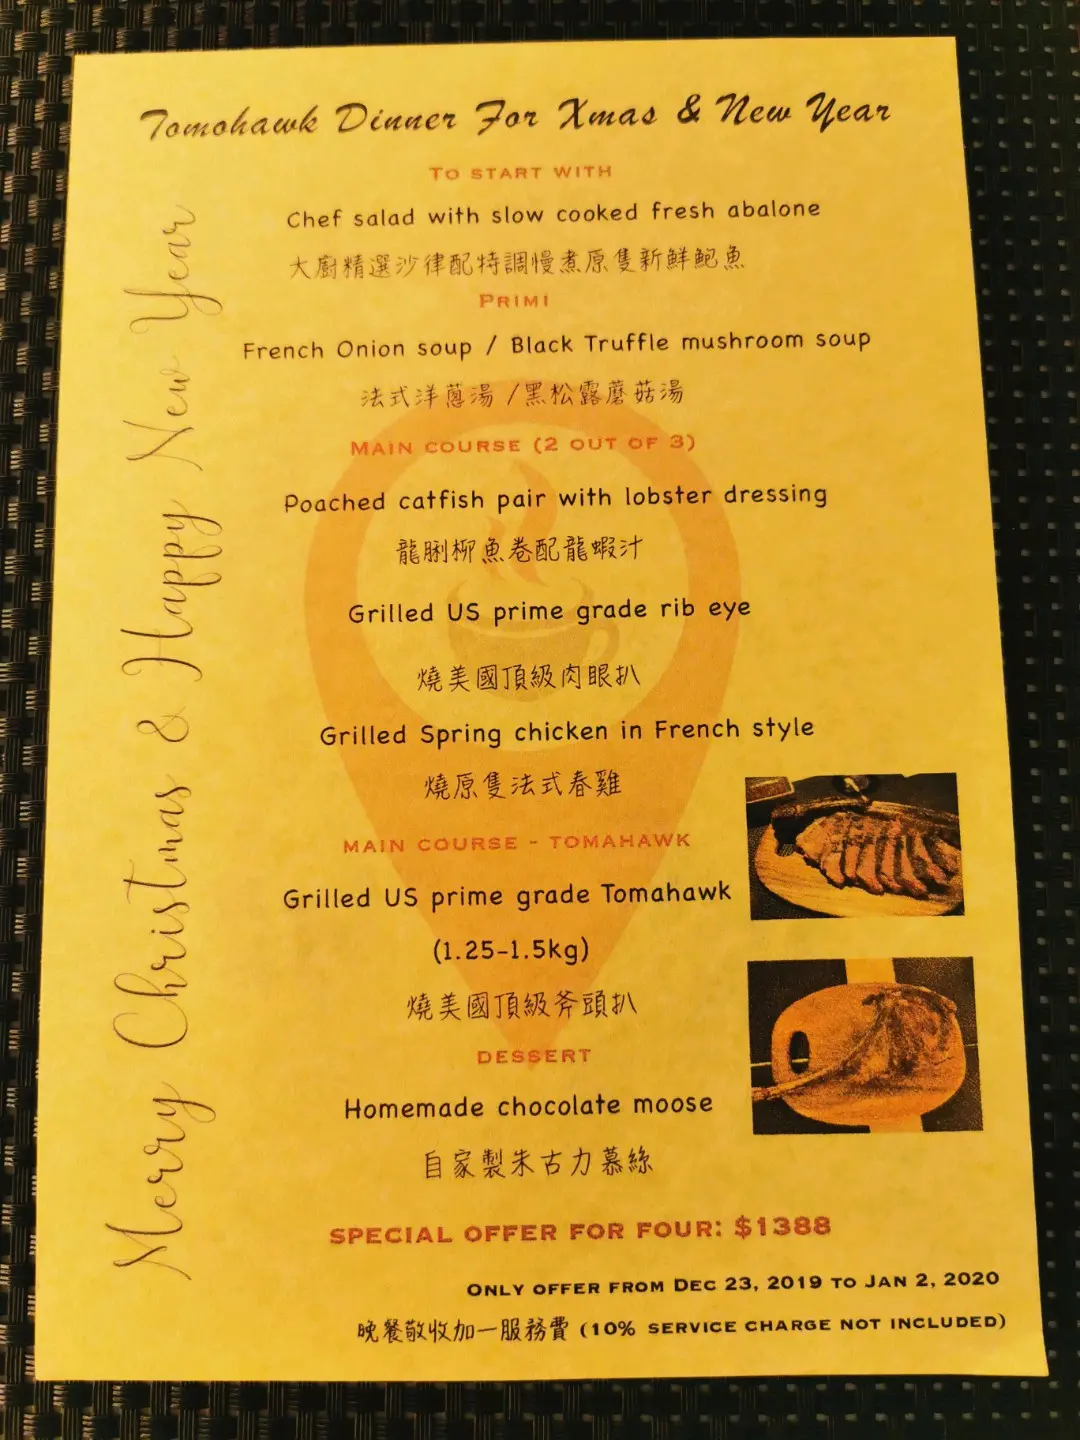 Tomohawk Dinner For Xmas & New Year
To start with
Chef salad with slow cooked fresh abalone
大廚精選沙律配特調慢煮原隻新鮮鮑魚
Primi
French Onion soup / Black Truffle mushroom soup
法式洋蔥湯 /黑松露蘑菇湯
Main course (2 out of 3)
Poached catfish pair with lobster dressing
龍脷柳魚卷配龍蝦汁
Grilled US prime grade rib eye
燒美國頂級肉眼扒
Grilled Spring chicken in French style
燒原隻法式春雞
main course - tomahawk
Grilled US prime grade Tomahawk
(1.25-1.5kg)
燒美國頂級斧頭扒
dessert
Homemade chocolate moose
自家製朱古力慕絲
special offer for four: $1388
Only offer from Dec 23, 2019 to Jan 2, 2020
晚餐敬收加一服務費 (10% service charge not included)
Merry Christmas & Happy New Year